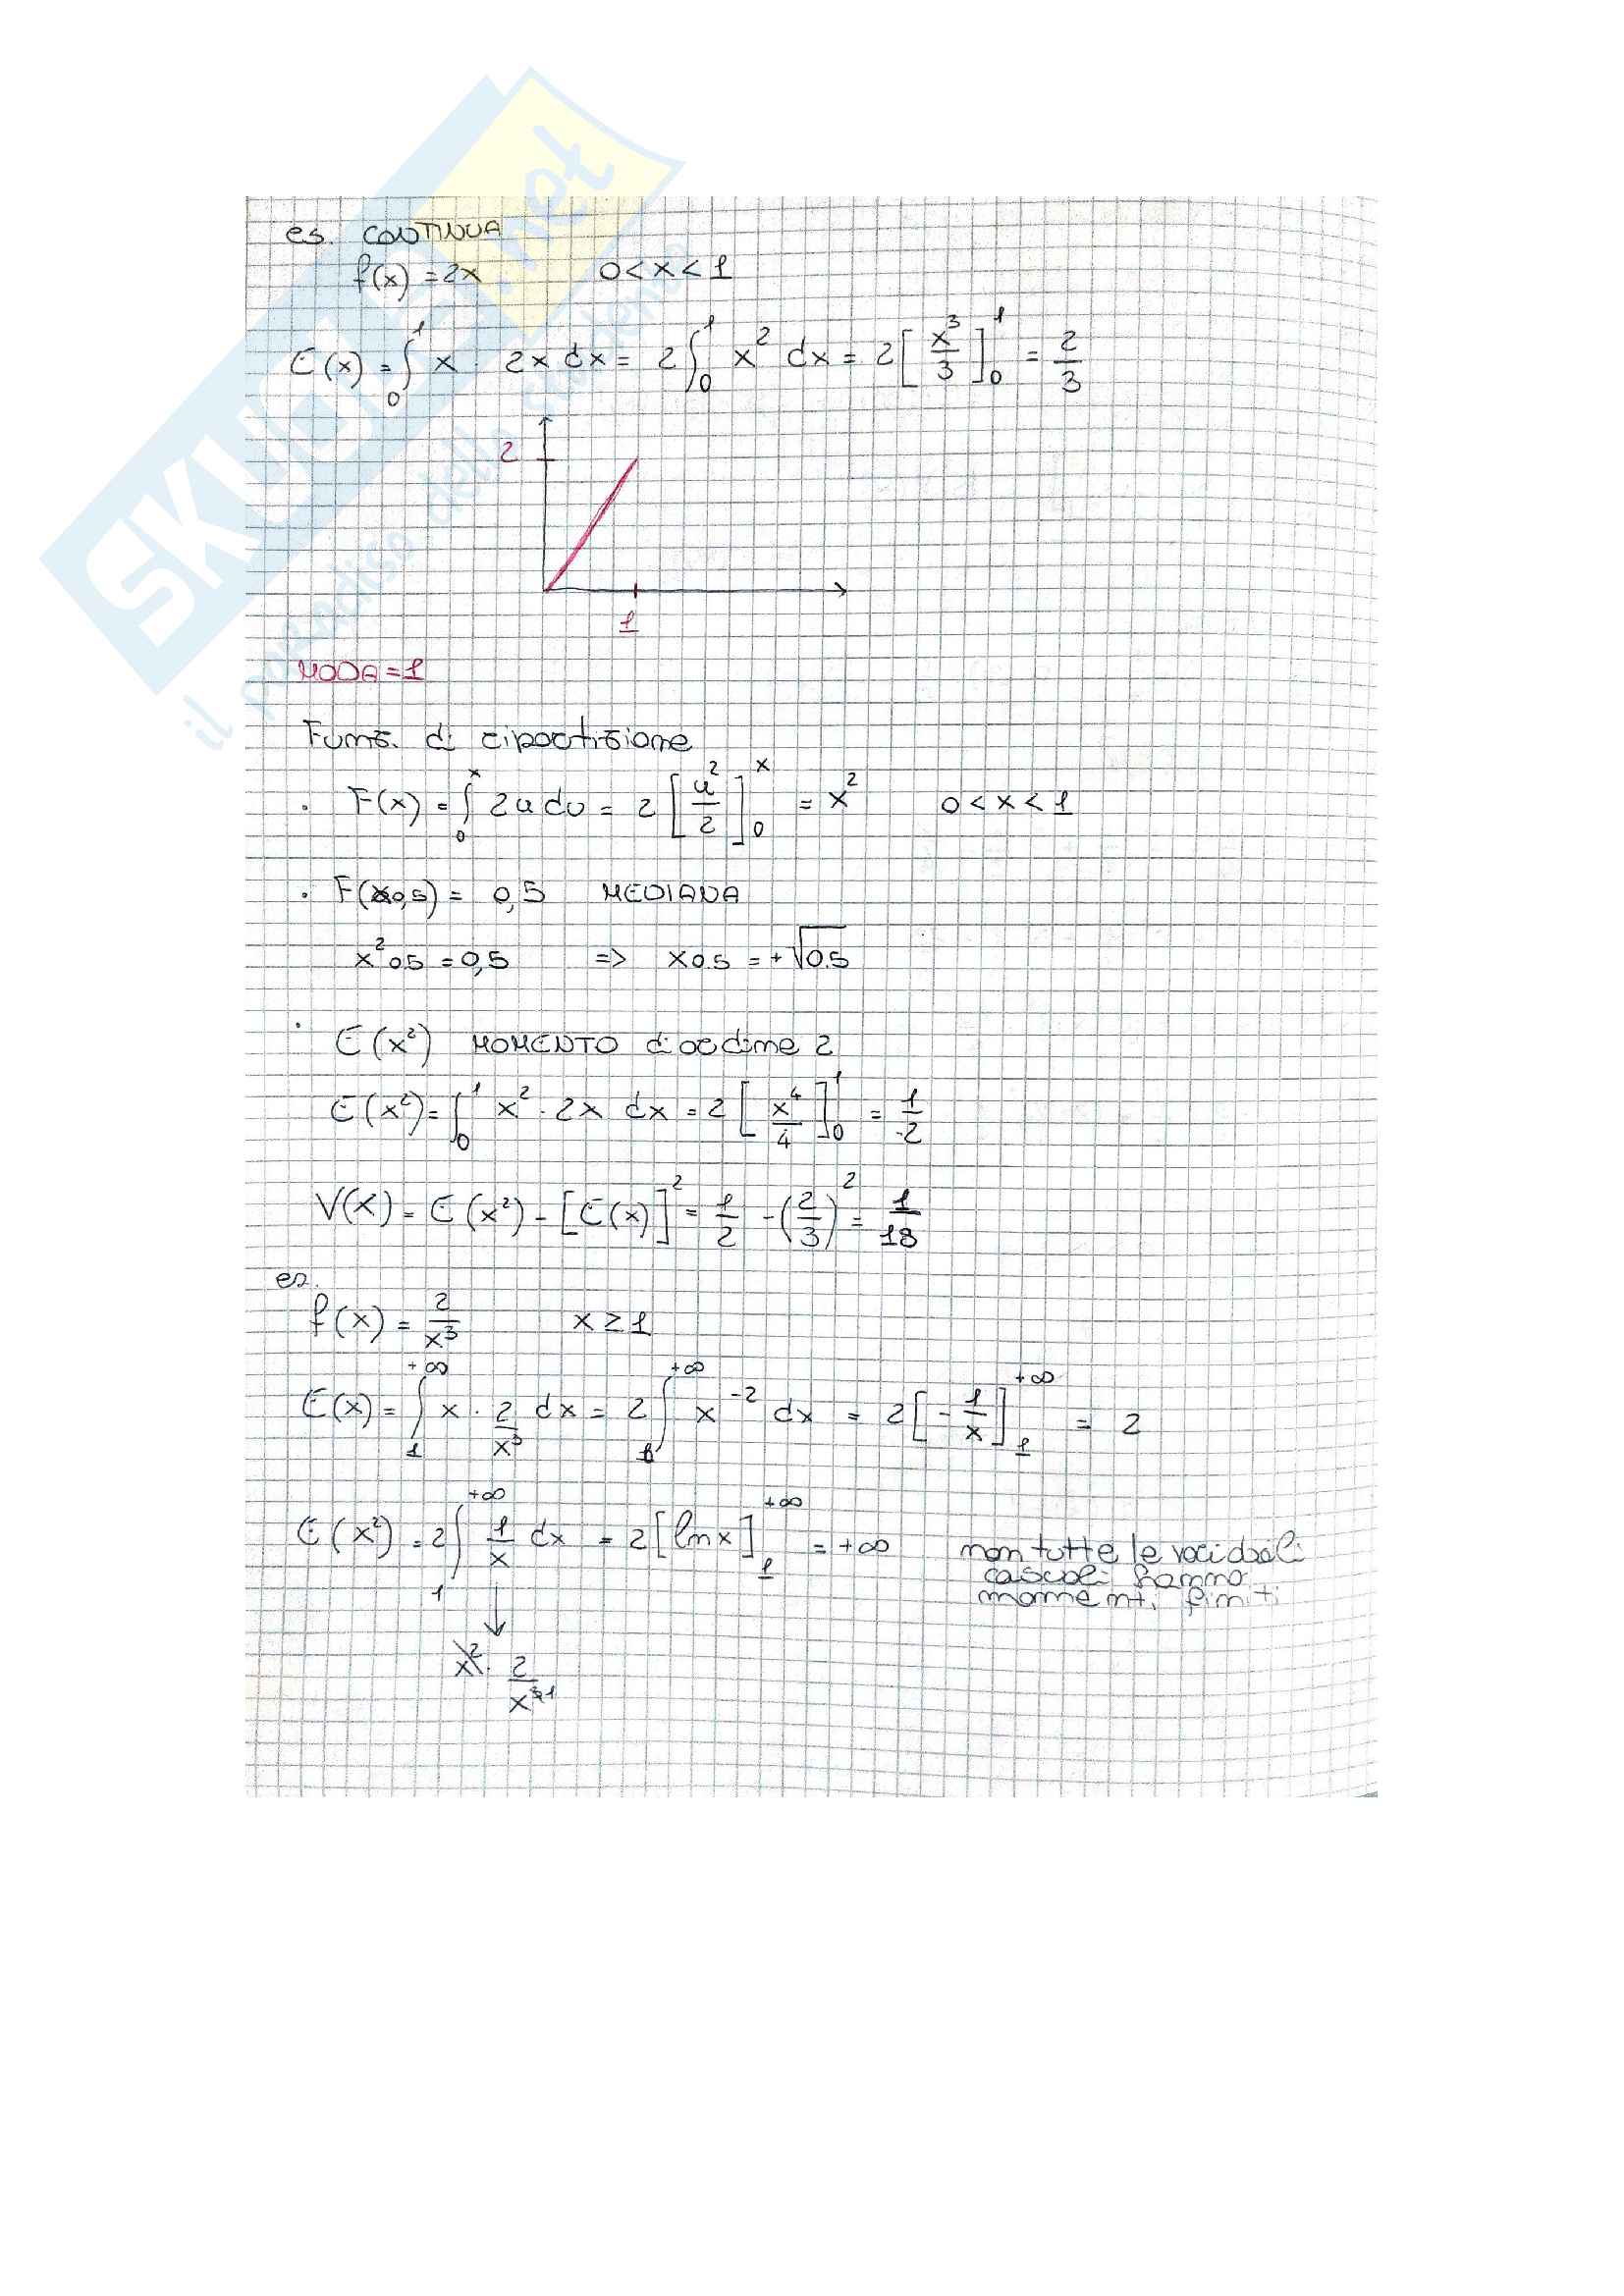 SKUOLA.net
il paradiso dello studente
es. CONTINUA
f(x) = 2x 0 < x < 1
E(x) = ∫₀¹ x · 2x dx = 2 ∫₀¹ x² dx = 2 [x³/3]₀¹ = 2/3
2
1
MODA = 1
Funz. di ripartizione
· F(x) = ∫₀ˣ 2u du = 2 [u²/2]₀ˣ = x² 0 < x < 1
· F(x0,5) = 0,5 MEDIANA
x² 0.5 = 0,5 => x0.5 = +√0.5
· E(x²) MOMENTO di ordine 2
E(x²) = ∫₀¹ x² · 2x dx = 2 [x⁴/4]₀¹ = 1/2
V(X) = E(x²) - [E(x)]² = 1/2 - (2/3)² = 1/18
es.
f(x) = 2/x³ x ≥ 1
E(x) = ∫₁^+∞ x · 2/x³ dx = 2 ∫₁^+∞ x⁻² dx = 2 [-1/x]₁^+∞ = 2
E(x²) = 2 ∫₁^+∞ 1/x dx = 2 [ln x]₁^+∞ = +∞ non tutte le variabili
casuali hanno
momenti finiti
↓
x² · 2/x³ 1